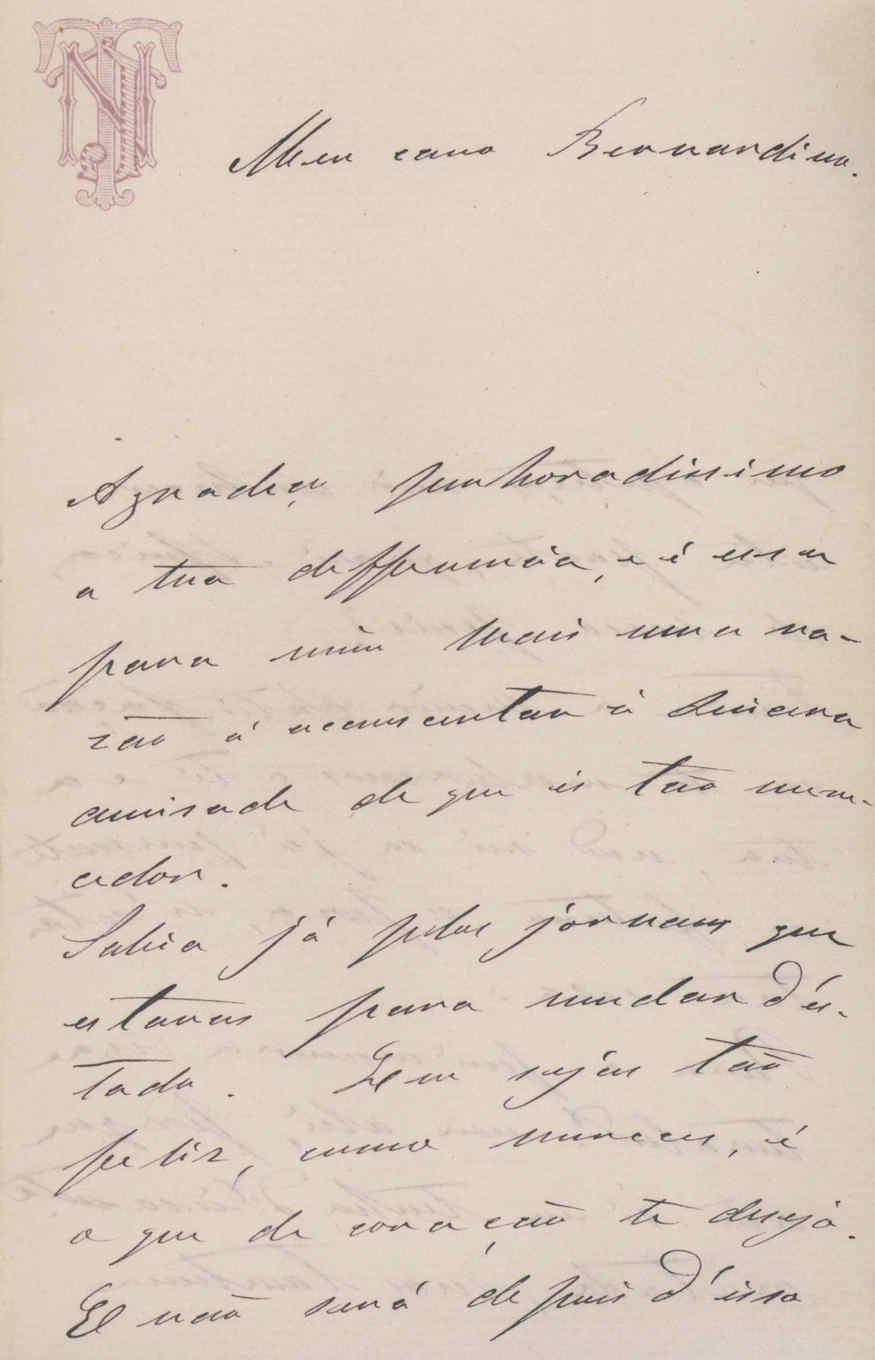 NT
Meu caro Bernardino.
Agradeço penhoradissimo
a tua defferencia, e é essa
para mim mais uma ra-
zão á accrescentar á sincera
amisade de que és tão mere-
cedor.
Sabia já pelos jornaes que
estavas para mudar d'es-
tado. Que sejas tão
feliz, como mereces, é
o que de coração te desejo.
E não será depois d'isso